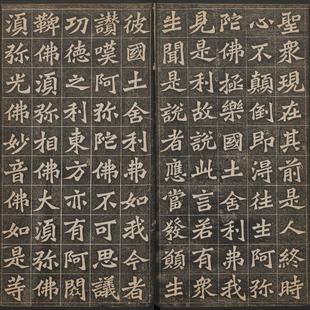 聖衆現在其前是人終時
心不顛倒即淂往生阿弥
陀佛極樂國土舍利弗我
見是利故說此言若有衆
生聞是說者應當發願生
彼國土舍利弗如我今者
讚嘆阿弥陀佛不可思議
功德之利東方亦有阿閦
鞞佛湏弥相佛大湏弥佛
湏弥光佛妙音佛如是等